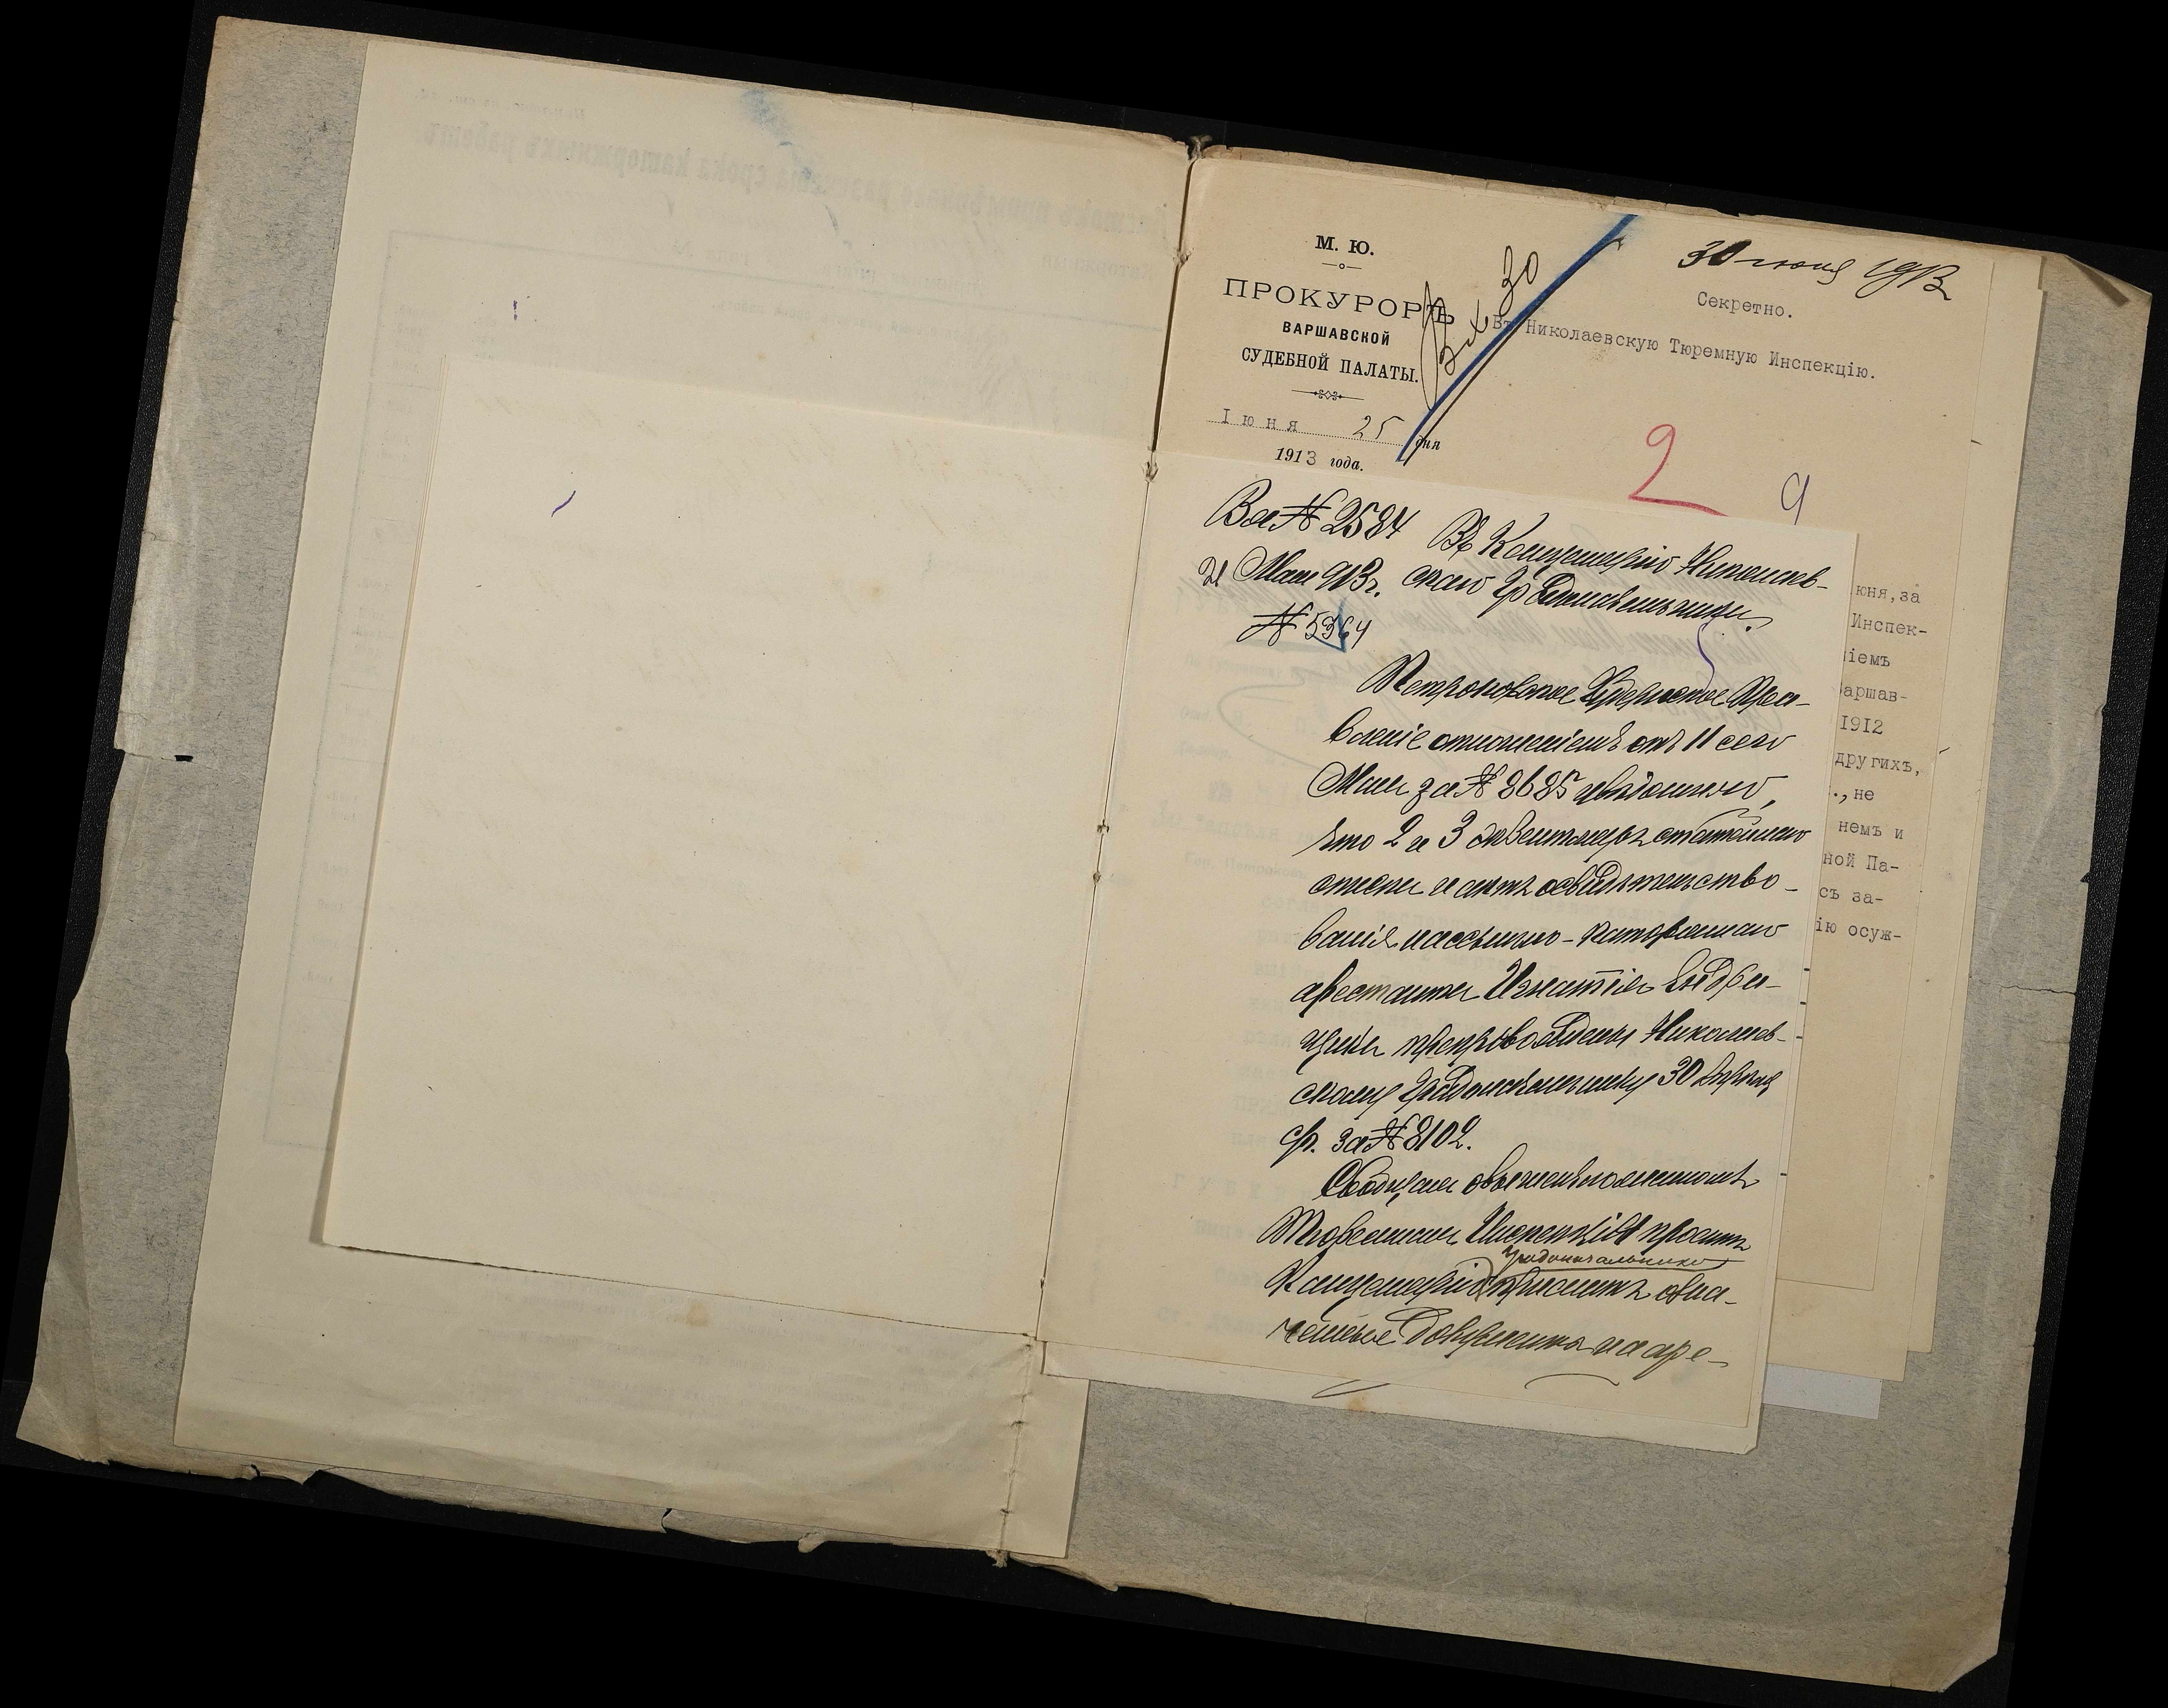 М. Ю.
ПРОКУРОРЪ
ВАРШАВСКОЙ
СУДЕБНОЙ ПАЛАТЫ.
Iюня 25 дня
1913 года.
Вх 30
30 июня 1913
Секретно.
Въ Николаевскую Тюремную Инспекцію.
2 9
юня, за
Инспек-
ніемъ
Варшав-
1912
другихъ,
., не
немъ и
ной Па-
съ за-
ію осуж-
Вх № 2584
21 Мая 913 г.
№ 5364
Въ Канцелярію Николаев-
скаго Градоначальника.
Петроковское Губернское Прав-
вленіе отношеніемъ отъ 11 сего
Мая за № 8685 увѣдомило,
что 2 и 3 экземпляръ статейнаго
списка и актъ освидѣтельство-
ванія ссыльно-каторжнаго
арестанта Игнатія Ендри-
цика препровождены Николаев-
скому Градоначальнику 30 Апрѣля
с/г. за № 8102.
Сообщая объ изложенномъ
Тюремная Инспекція проситъ
Канцелярію Градоначальника прислать озна-
ченные документы на аре-